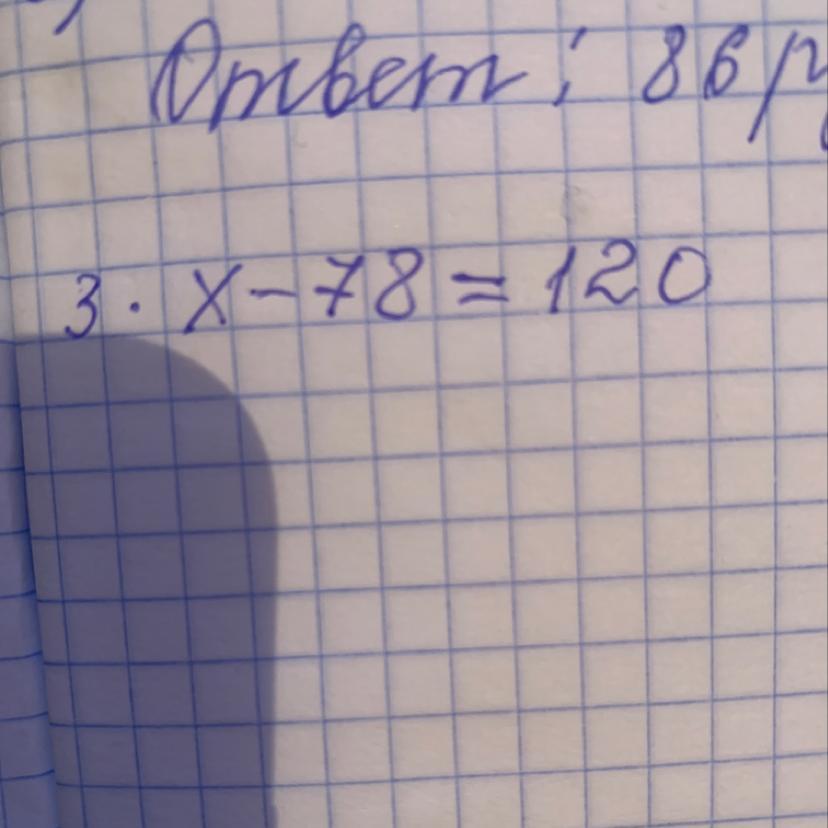 Ответ: 86 р
3 · x - 78 = 120